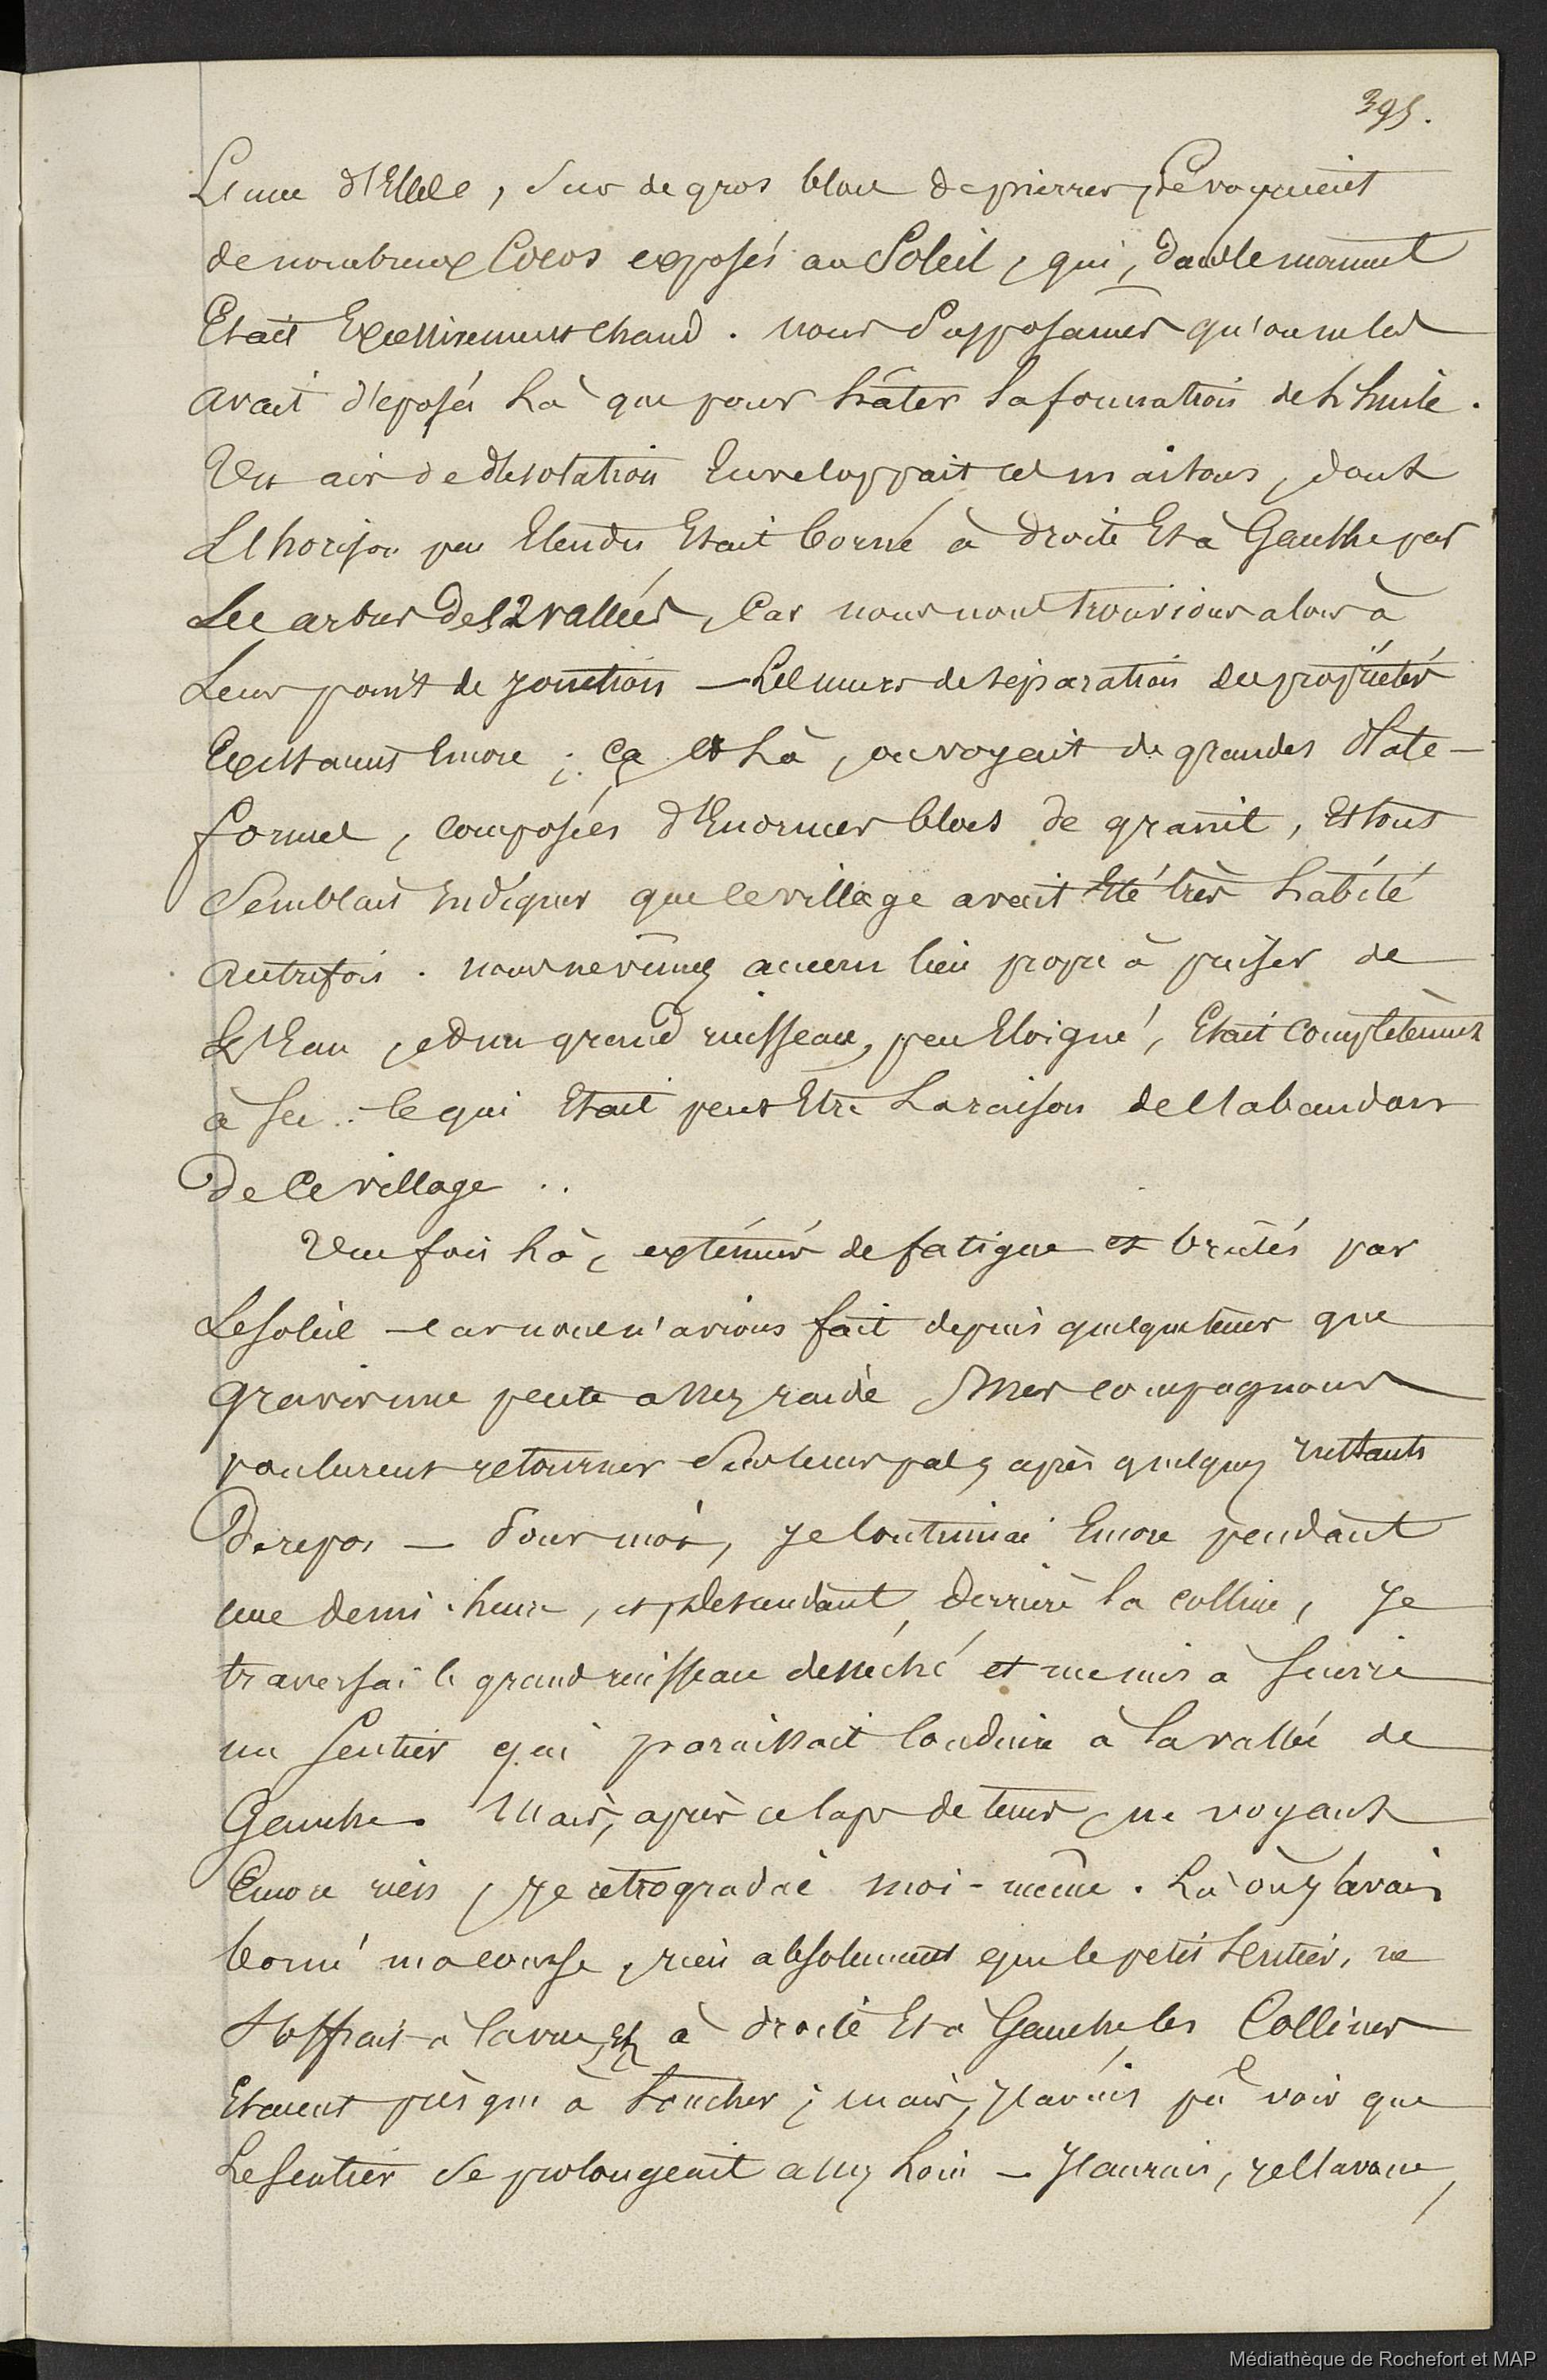 395.
L'une d'Elles, sur de gros blocs de pierres, se voyaient
de nombreux Cocos exposés au Soleil, qui, dans le moment
Etait Excessivement chaud. nous Supposâmes qu'on ne les
avait déposés là que pour hâter la formation de l'huile.
Un air de désolation Enveloppait ces maisons, dont
L'horison peu Etendu Etait borné à droite Et à Gauche par
Les arbres des 2 vallées, Car nous nous trouvions alors à
Leur point de jonction — Les murs de séparation des propriétés
Existaient Encore ; ça et là, on voyait de grandes Plate-
formes, composées d'Enormes blocs de granit, Et tout
Semblait Indiquer que le village avait Eté très habité
autrefois. nous ne vîmes aucun lieu propre à puiser de
L'Eau, et un grand ruisseau, peu Eloigné, Etait Complètement
à sec.. Ce qui Etait peut Etre La raison de l'abandon
de Ce village ..
Une fois là, exténués de fatigue et brûlés par
Le soleil — car nous n'avions fait depuis quelque tems que
gravir une pente assez raide mes compagnons
voulurent retourner sur leurs pas, après quelques Instants
de repos — Pour moi, je Continuai Encore pendant
une demi-heure, et, descendant derrière la colline, je
traversai le grand ruisseau desséché et me mis à suivre
un Sentier qui paraissait Conduire à la vallée de
Gauche. Mais, après ce laps de tems, ne voyant
Encore rien, je rétrogradai moi-même. Là où j'avais
borné ma course, rien absolument que le petit sentier, ne
s'offrait à la vue, Et à droite Et à Gauche, les Collines
Etaient presque à toucher ; mais, j'avais pû voir que
Le sentier se prolongeait assez loin — J'aurais, je l'avoue,
Médiathèque de Rochefort et MAP